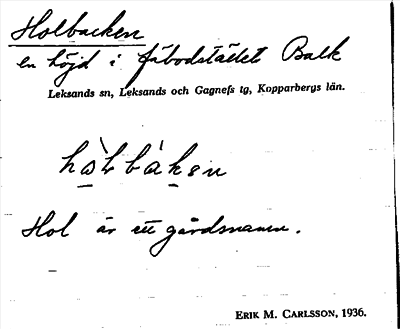 Holbacken
en höjd i fäbodstället Balk
Leksands sn, Leksands och Gagnefs tg, Kopparbergs län.
hòlbáken
Hol är ett gårdsnamn.
ERIK M. CARLSSON, 1936.